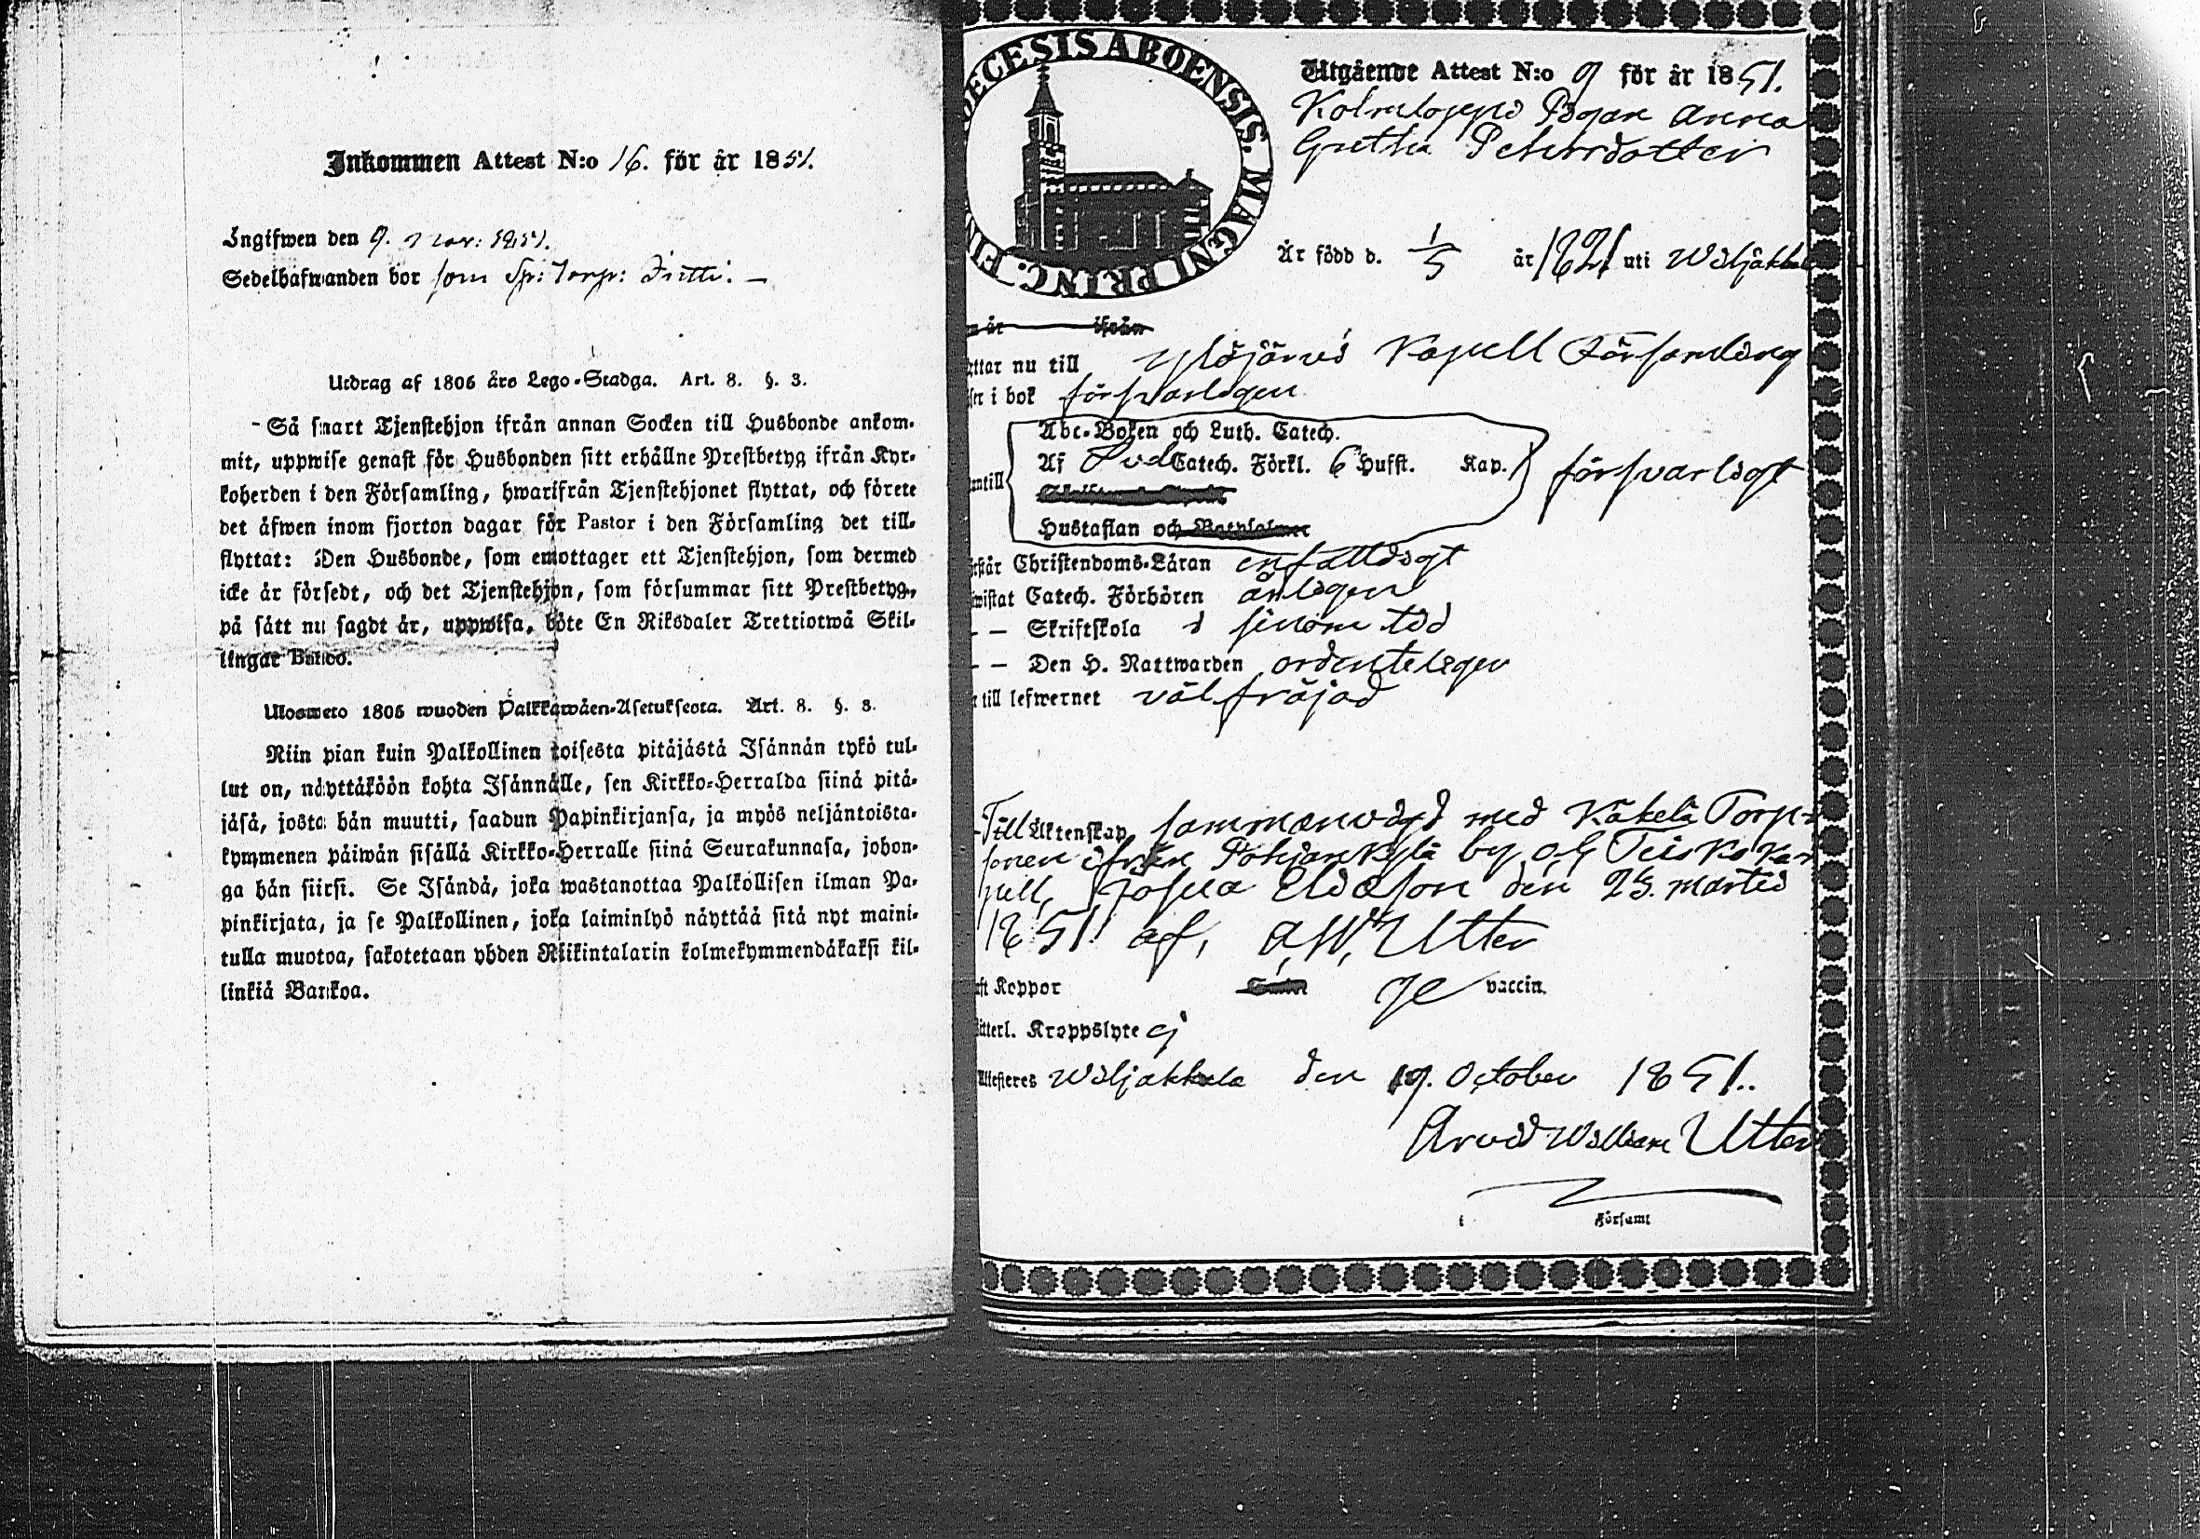 Inkommen Attest N:o 16. för år 1851.
Ingifwen den 9. Nov: 1851.
Sedelhafwanden bor som Sp: Torp:
Utdrag af 1805 års Lego-Stadga. Art. 8. §. 3.
Så snart Tjenstehjon ifrån annan Socken till Husbonde ankom-
mit, uppwise genast för Husbonden sitt erhållne Prestbetyg ifrån Kyr-
koherden i den Församling, hwarifrån Tjenstehjonet flyttat, och förete
det äfwen inom fjorton dagar för Pastor i den Församling det till-
flyttat: Den Husbonde, som emottager ett Tjenstehjon, som dermed
icke är försedt, och det Tjenstehjon, som försummar sitt Prestbetyg,
på sätt nu sagdt är, uppwisa, böte En Riksdaler Trettiotwå Skil-
lingar Banco.
Ulosweto 1805 wuoden Palkkawäen-Asetuksesta. Art. 8. §. 3.
Niin pian kuin Palkollinen toisesta pitäjästä Isännän tykö tul-
lut on, näyttäköön kohta Isännälle, sen Kirkko-Herralda siinä pitä-
jäsä, josta hän muutti, saadun Papinkirjansa, ja myös neljäntoista-
kymmenen päiwän sisällä Kirkko-Herralle siinä Seurakunnasa, johon-
ga hän siirsi. Se Isändä, joka wastanottaa Palkollisen ilman Pa-
pinkirjata, ja se Palkollinen, joka laiminlyö näyttää sitä nyt maini-
tulla muotoa, sakotetaan yhden Riikintalarin kolmekymmendäkaksi kil-
linkiä Bankoa.
DECESIS ABOENSIS. MAGNI PRINC. FIN
Utgående Attest N:o 9 för år 1851.
Pigan Anna
Greta Pehrsdotter
Är född d. 1/5 år 1821 uti Wiljakkal
n är ifrån
ttar nu till Ylöjärvi Kapell Församling
ser i bok försvarligen
Abc-Boken och Luth. Catech.
Af Catech. Förkl. 6 Husst. Kap. försvarligt
antill
Hustaflan och Botpsalmer
rstår Christendoms-Läran enfaldigt
wistat Catech. Förhören årligen
– – Skriftskola i sinom tid
– – Den H. Nattwarden ordenteligen
till lefwernet välfräjdad
Till Äktenskap sammanvigd med Käkelä Torp-
paren ifrån Pohjankylä by och Teisko Ka-
pell, Josua Eliæson den 25. Martii
1851 af, A, W, Utter
ft Koppor ge vaccin.
tterl. Kroppslyte ej
Attesteres Wiljakkala den 19. October 1851.
Arvid William Utter
i Församl